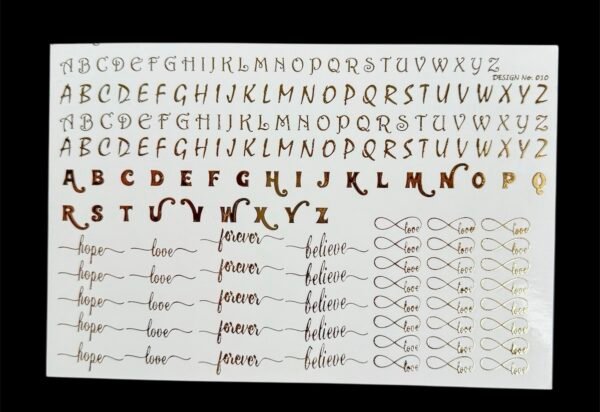 ABCDEFGHIJKLMNOPQRSTUVWXYZ
DESIGN No: 010
ABCDEFGHIJKLMNOPQRSTUVWXYZ
ABCDEFGHIJKLMNOPQRSTUVWXYZ
ABCDEFGHIJKLMNOPQRSTUVWXYZ
A B C D E F G H I J K L M N O P Q
R S T U V W X Y Z
hope love forever believe love love love
hope love forever believe love love love
hope love forever believe love love love
hope love forever believe love love love
hope love forever believe love love love
love love love
love love love
love love love